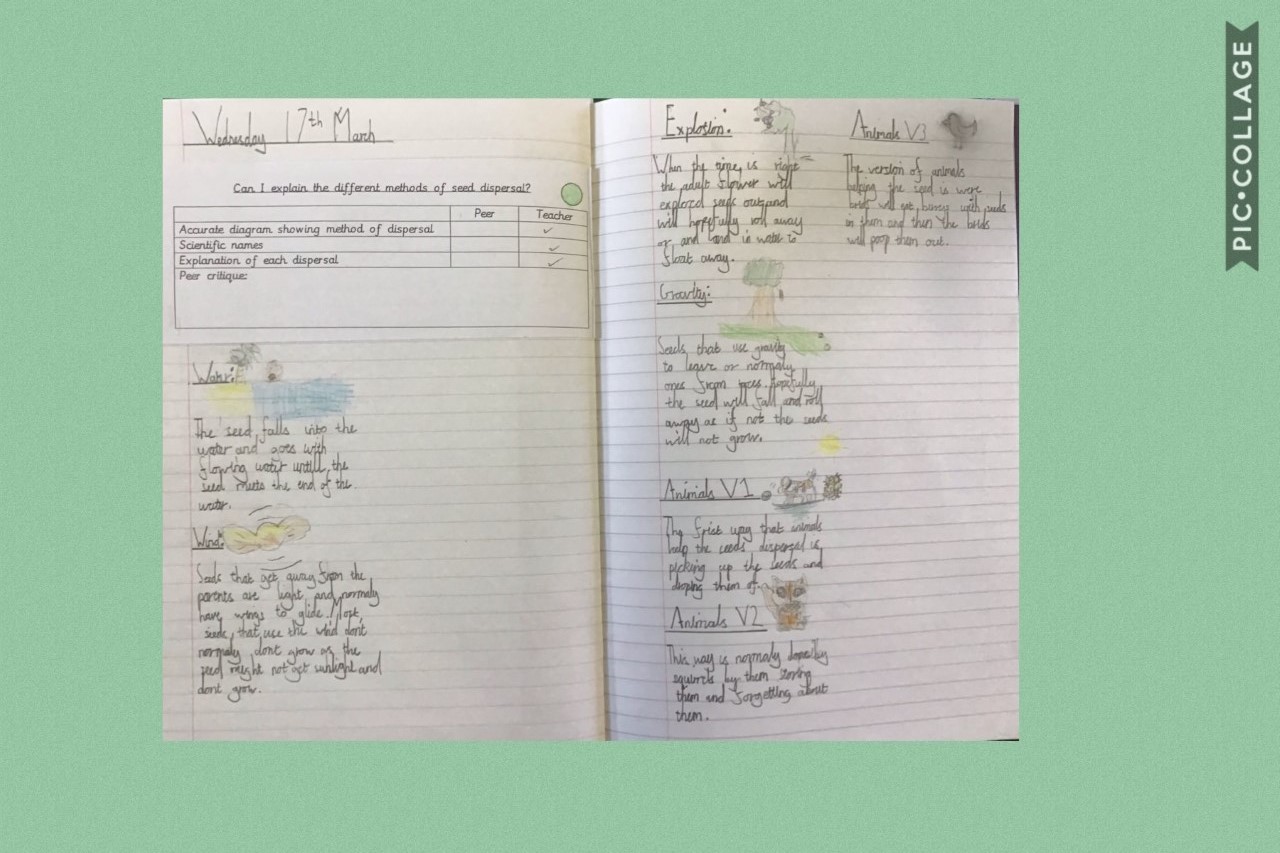 Wednesday 17th March
Can I explain the different methods of seed dispersal?
Peer Teacher
Accurate diagram showing method of dispersal
Scientific names
Explanation of each dispersal
Peer critique:
Water:
The seed falls into the
water and goes with
flowing water untill the
seed meets the end of the
water.
Wind:
Seeds that get away from the
parents are light and normaly
have wings to glide. Most
seeds that use the wind dont
normaly dont grow as the
seed might not get sunlight and
dont grow.
Explosion:
When the time is right
the adult flower will
explored seeds out and
will hopefully roll away
or and land in water to
float away.
Gravity:
Seeds that use gravity
to leave or normaly
ones from trees. hopefully
the seed will fall and roll
away as if not the seeds
will not grow.
Animals V1
The frist way that animals
help the seeds dispersal is
picking up the seeds and
droping them of.
Animals V2
This way is normaly done by
squirrels by them storing
them and forgetting about
them.
Animals V3
The version of animals
helping the seed is were
birds will get with seeds
in them and then the birds
will poop them out.
PIC•COLLAGE